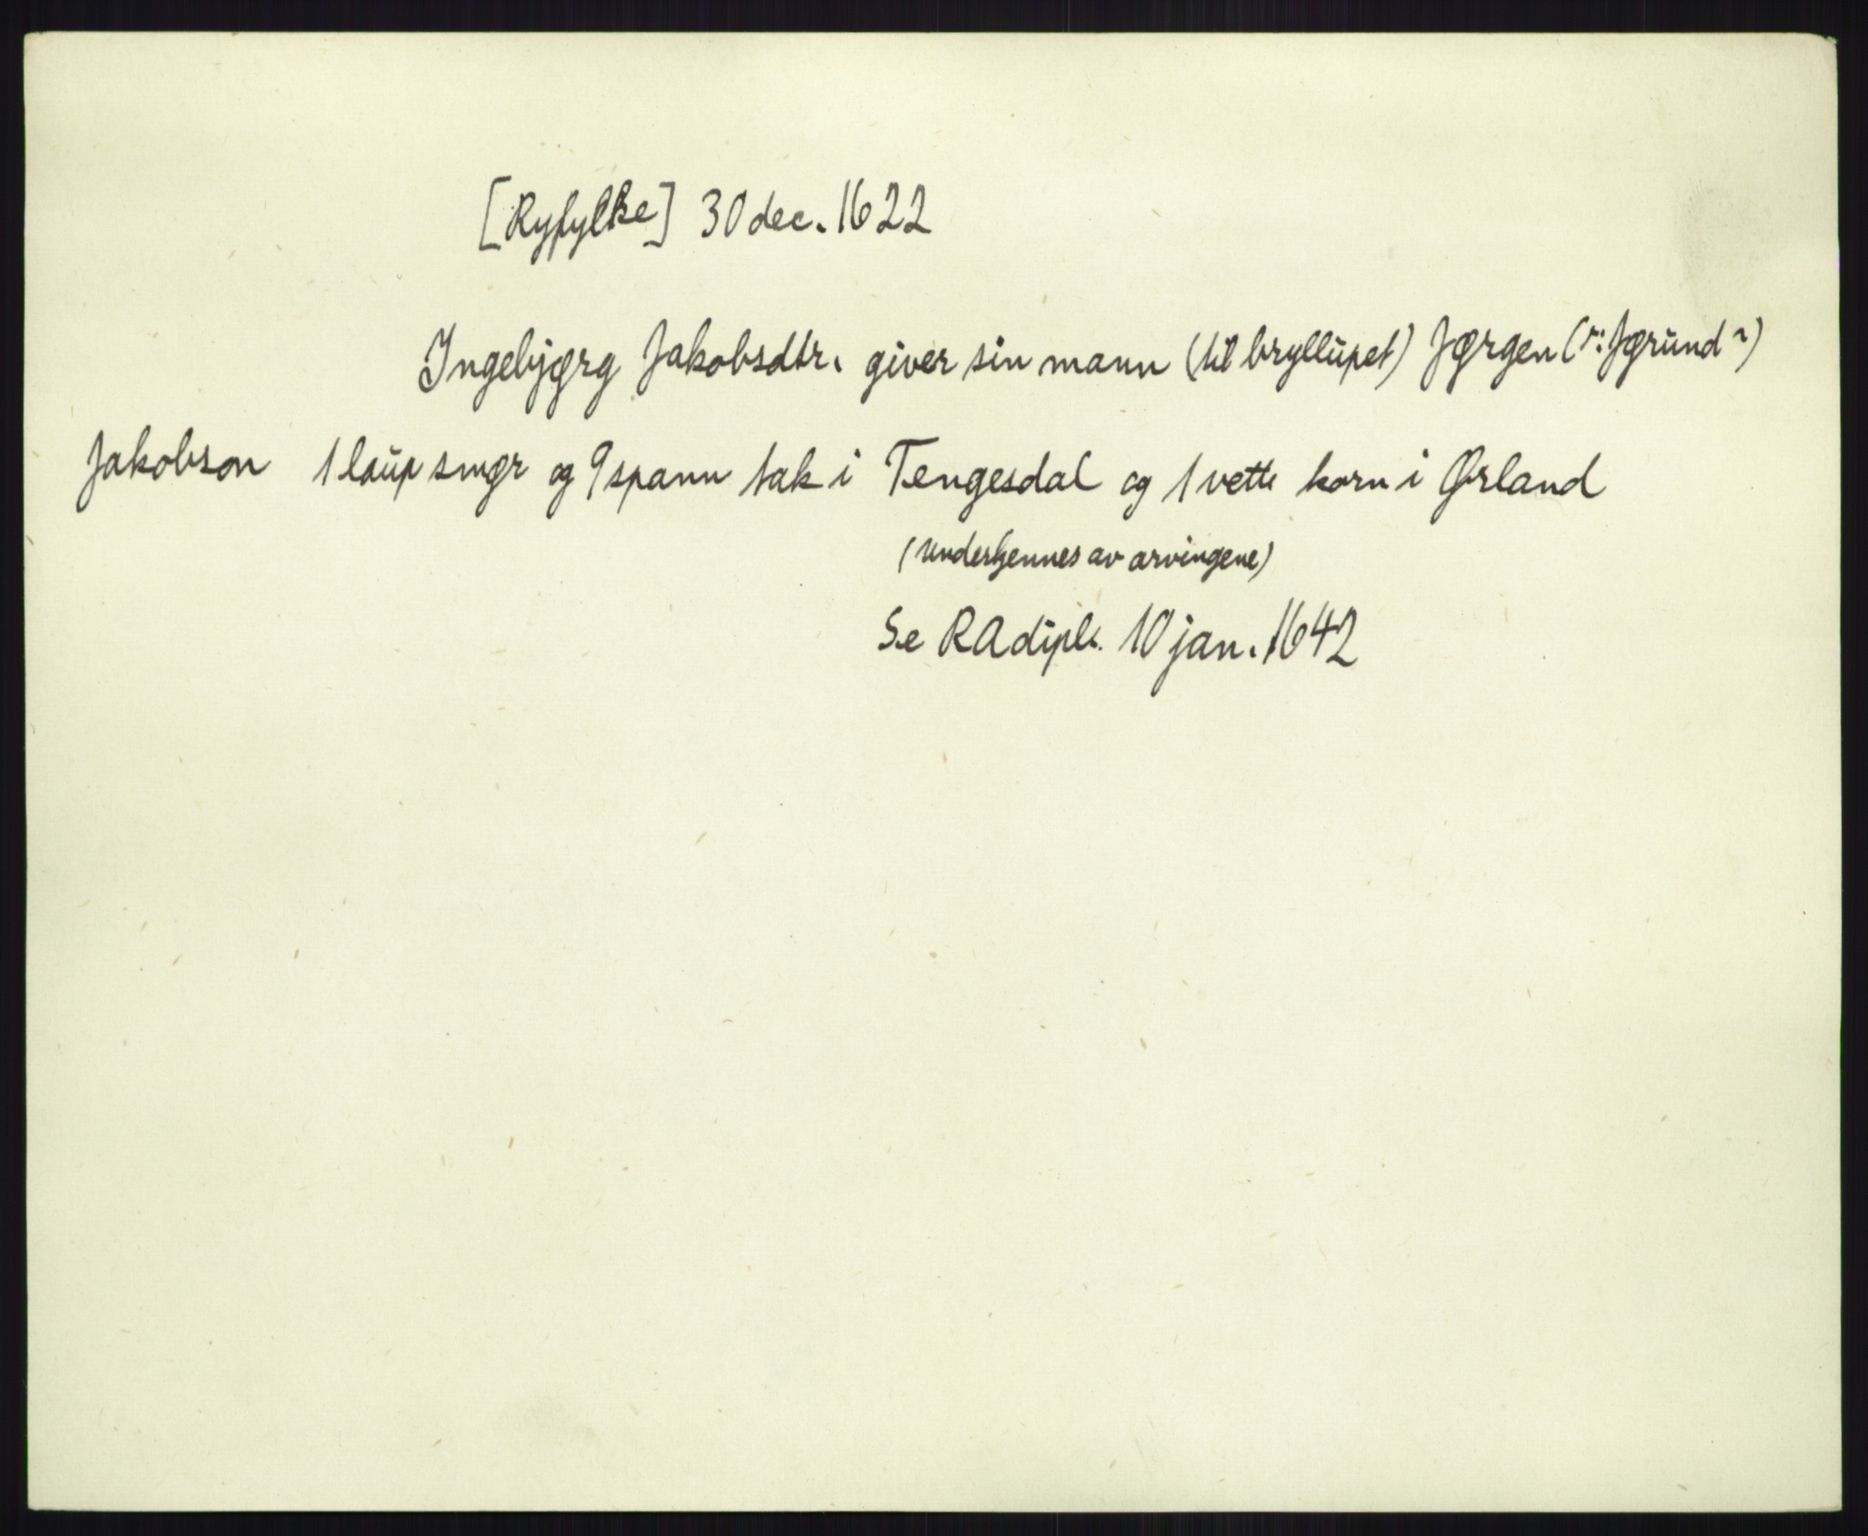 [Ryfylke] 30 dec. 1622
Ingebjørg Jakobsdtr. giver sin mann (til bryllupet) Jørgen (ɔ: Jørund?)
Jakobson 1 laup smør og 9 spann tak i Tengesdal og 1 vett korn i Ørland
(underkjennes av arvingene)
Se RA dipl. 10 jan. 1642